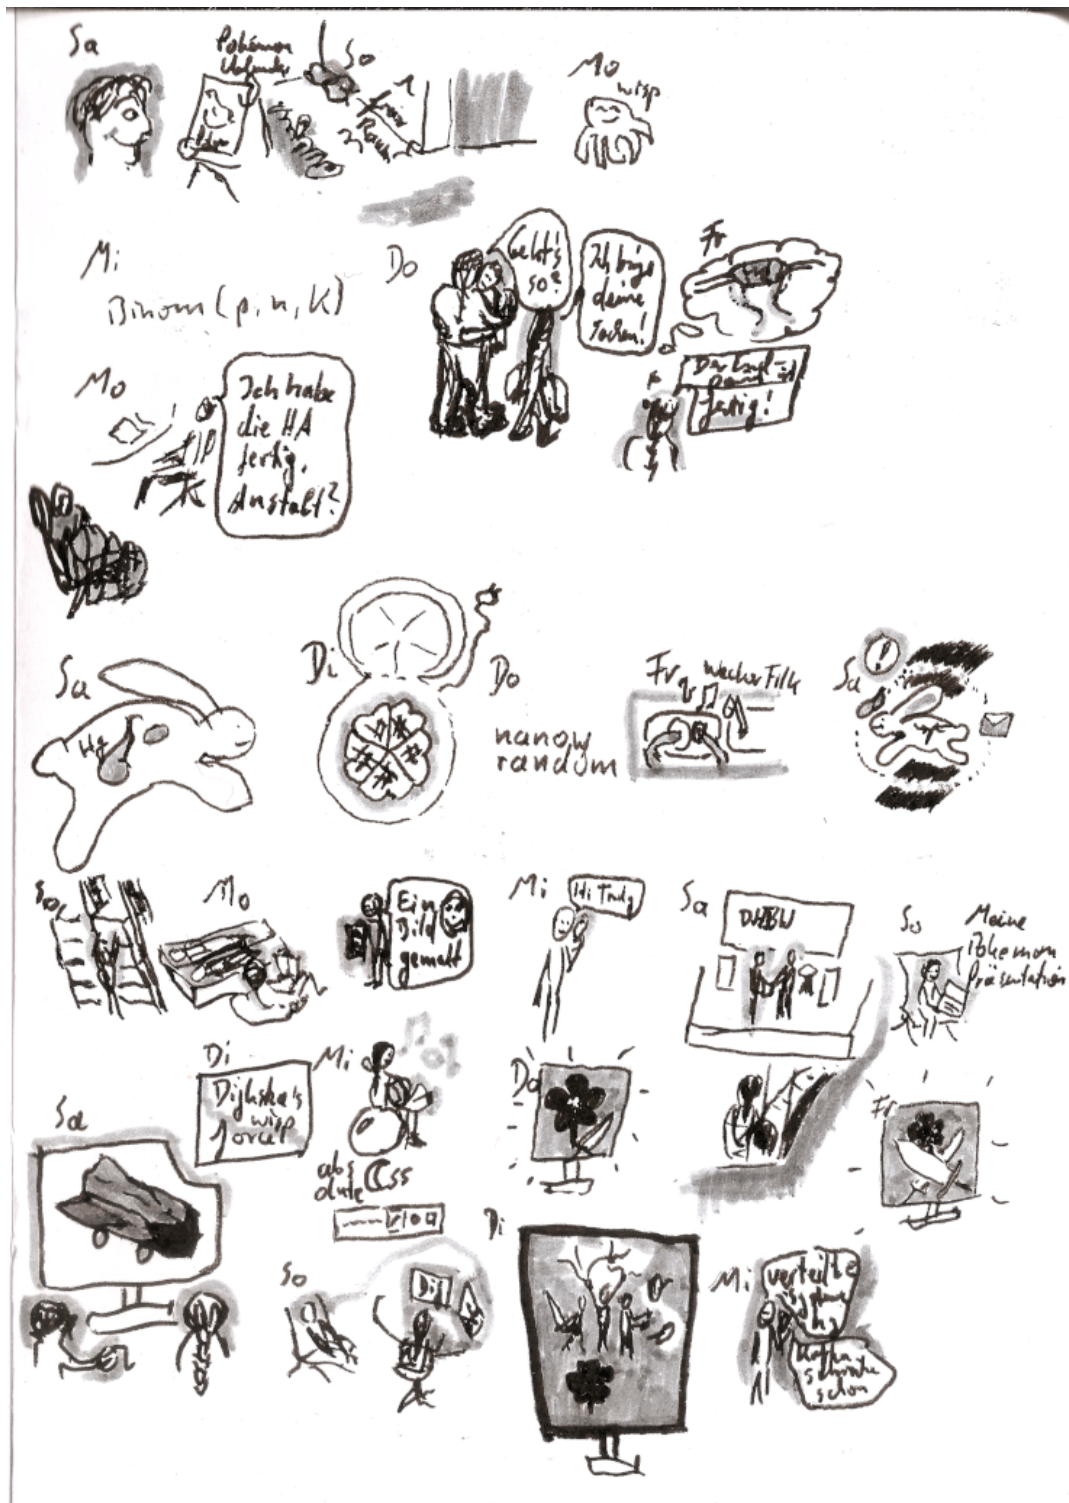 Sa
Pokémon
So
Mo
wisp
Mi
Binom(p, n, k)
Do
Geht's
so?
Ich bringe
deine
Sachen!
Fr
fertig!
Mo
Ich habe
die HA
fertig.
Anstalt?
Sa
Hg
Di
Do
nanow
random
Fr
Wecker Fille
Sa
!
So
Mo
Ein
Bild
gemalt
Mi
Hi Trudy
Sa
DHBW
So
Meine
Pokemon
Präsentation
Di
Dijkstra's
wisp
force!
Mi
abs
olute
CSS
Do
Fr
Sa
So
Di
Mi
verteilte
Systeme
schon